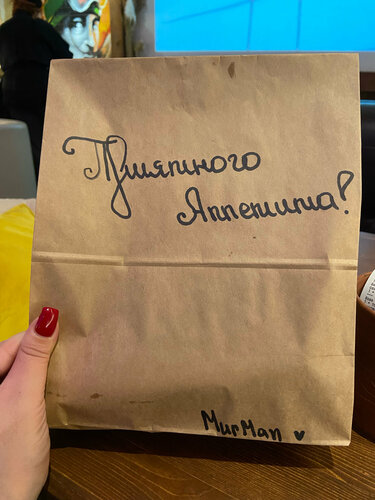 Приятного
Аппетита!
MurMan ♥